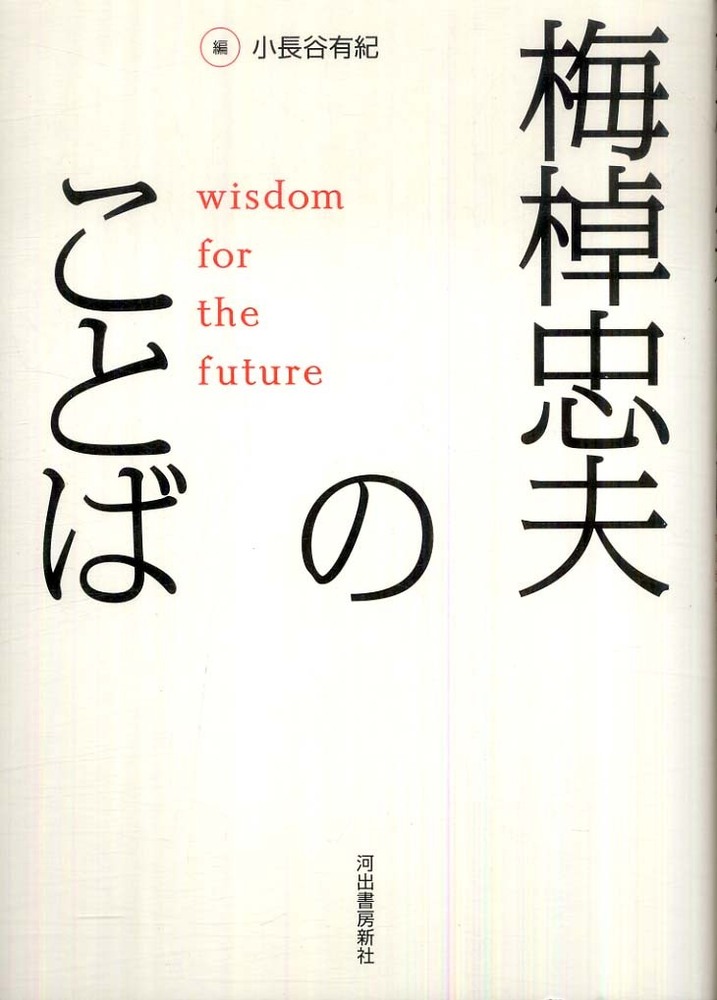 梅棹忠夫
の
ことば
wisdom
for
the
future
編 小長谷有紀
河出書房新社